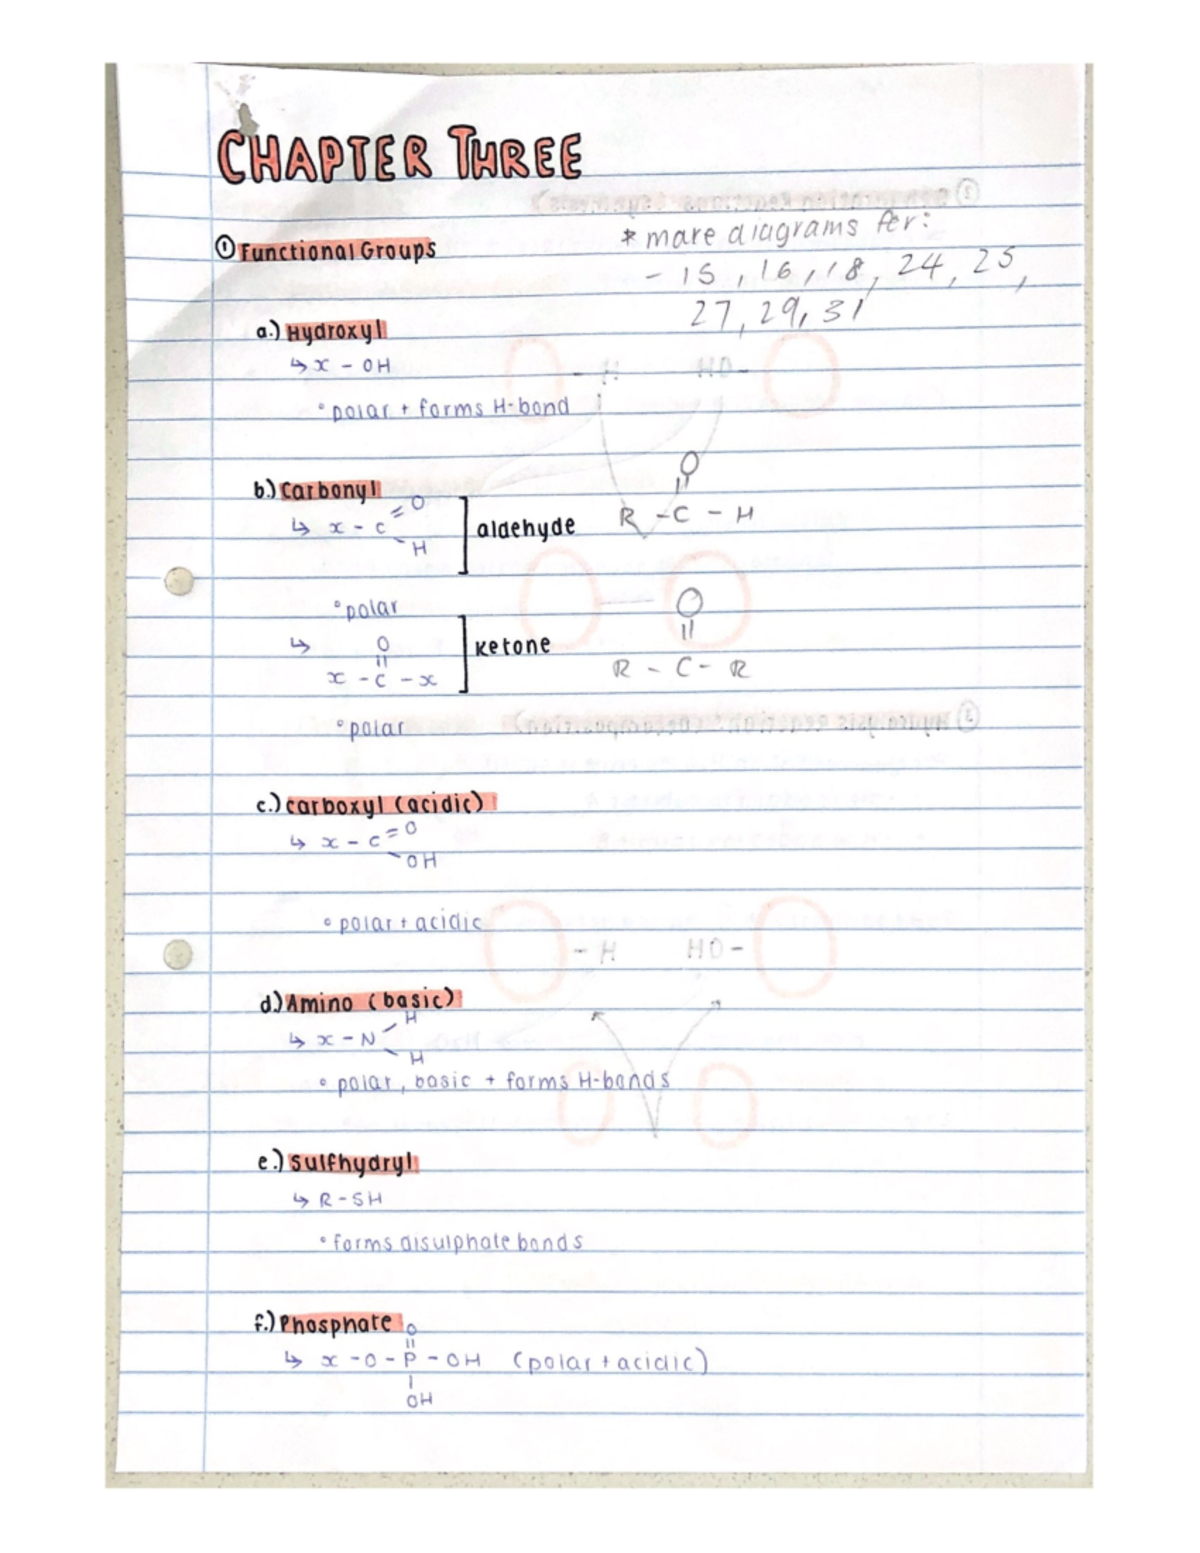 CHAPTER THREE
* more diagrams for:
- 15, 16, 18, 24, 25,
27, 29, 31
① Functional Groups
a.) Hydroxyl
↳ x - OH
° polar + forms H-bond
b.) Carbonyl
↳ x - C = O
- H
] aldehyde
O
||
R - C - H
° polar
↳ O
||
x - C - x
] Ketone
O
||
R - C - R
° polar
c.) carboxyl (acidic)
↳ x - C = O
- OH
° polar + acidic
- H HO -
d.) Amino (basic)
↳ x - N - H
- H
° polar, basic + forms H-bonds
e.) Sulfhydryl
↳ R - SH
° forms disulphate bonds
f.) Phosphate
O
||
↳ x - O - P - OH (polar + acidic)
|
OH